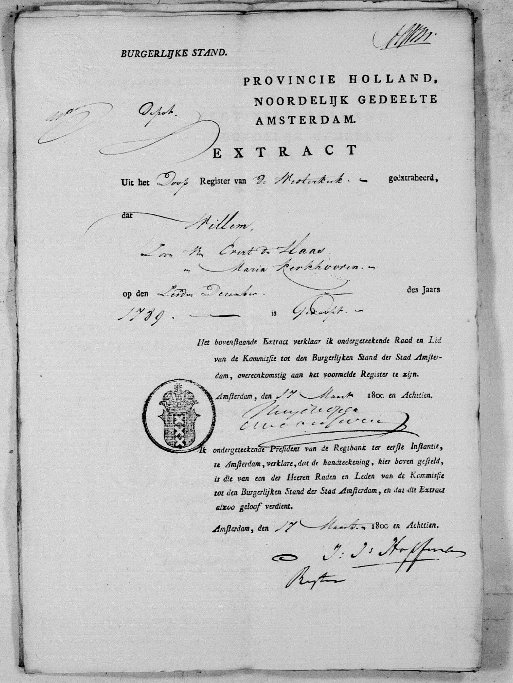 BURGERLIJKE STAND.
PROVINCIE HOLLAND,
NOORDELIJK GEDEELTE
AMSTERDAM.
EXTRACT
Uit het Doop Register van de Westerkerk. geëxtraheerd,
dat
Willem,
Zoon Van Evert de Haas
Maria Kerkhoven
op den December des Jaars
1789 is Gedoopt.
Het bovenstaande Extract verklaar ik ondergeteekende Raad en Lid
van de Kommissie tot den Burgerlijken Stand der Stad Amster-
dam, overeenkomstig aan het voormelde Register te zijn.
Amsterdam, den 17 Maart 1800 en Achttien.
Ik ondergeteekende President van de Regtbank ter eerste Instantie,
te Amsterdam, verklare, dat de handteekening, hier boven gesteld,
is die van een der Heeren Raden en Leden van de Kommissie
tot den Burgerlijken Stand der Stad Amsterdam, en dat dit Extract
alzoo geloof verdient.
Amsterdam, den 17 Maart 1800 en Achttien.